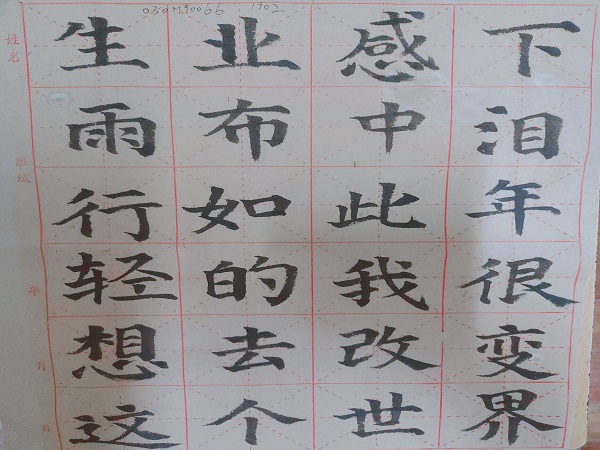 生业感下
雨布中泪
行如此年
轻的我很
想去改变
这个世界
姓名
班级
年
月
日